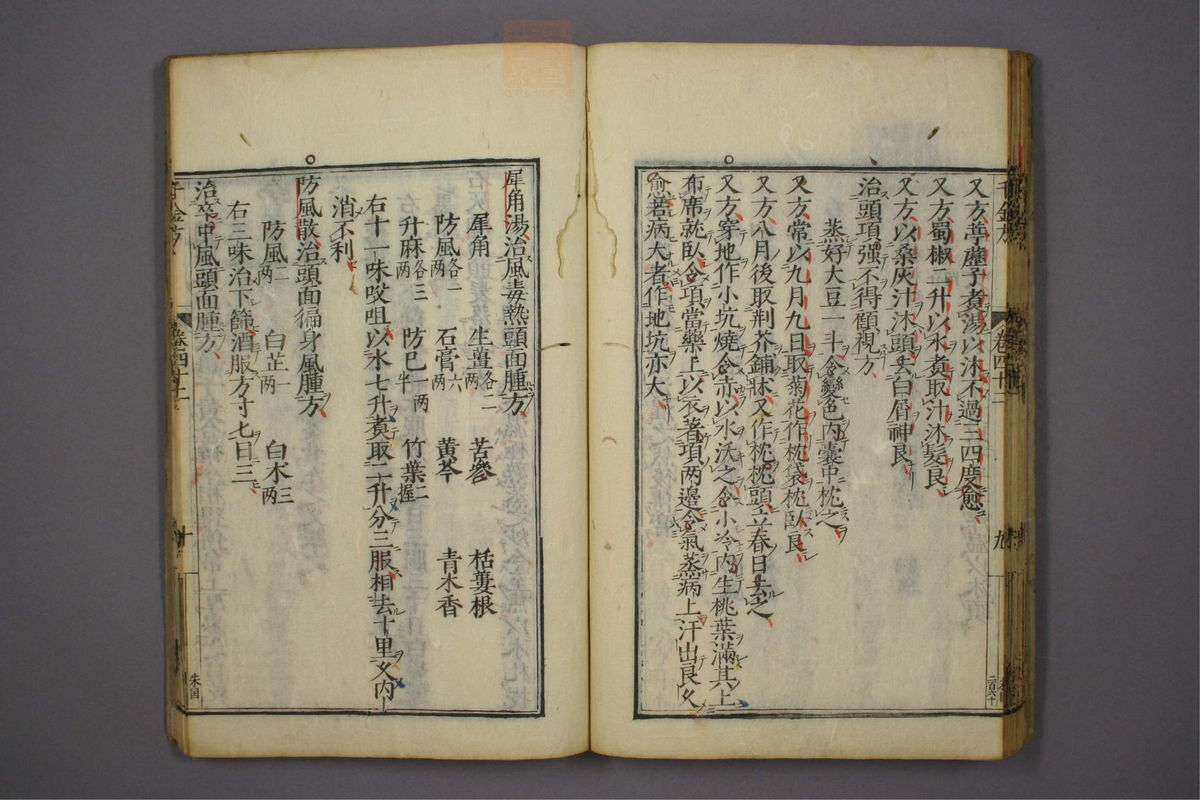 又方葶藶子煮湯以沐不過三四度愈
又方蜀椒二升以水煮取汁沐髮良
又方以桑灰汁沐頭去白屑神良
治頭項强不得顧視方
蒸好大豆一斗令變色內囊中枕之
又方常以九月九日取菊花作枕袋枕臥良
又方八月後取荆芥鋪牀又作枕枕頭立春日去之
又方穿地作小坑燒令赤以水沃之令小冷內生桃葉滿其上
布席就臥令項當藥上以衣著項兩邊令氣蒸病上汗出良久
愈若病大者作地坑亦大
卷四十二
九
犀角湯治風毒熱頭面腫方
犀角 生薑各二兩 苦參 栝蔞根
防風各二兩 石膏六兩 黃芩 青木香
升麻各三兩 防已一兩半 竹葉二握
右十一味㕮咀以水七升煮取二升分三服相去十里又內
消不利
防風散治頭面徧身風腫方
防風二兩 白芷一兩 白朮三兩
右三味治下篩酒服方寸七日三
治卒中風頭面腫方
千金方
卷四十二
十
朱国